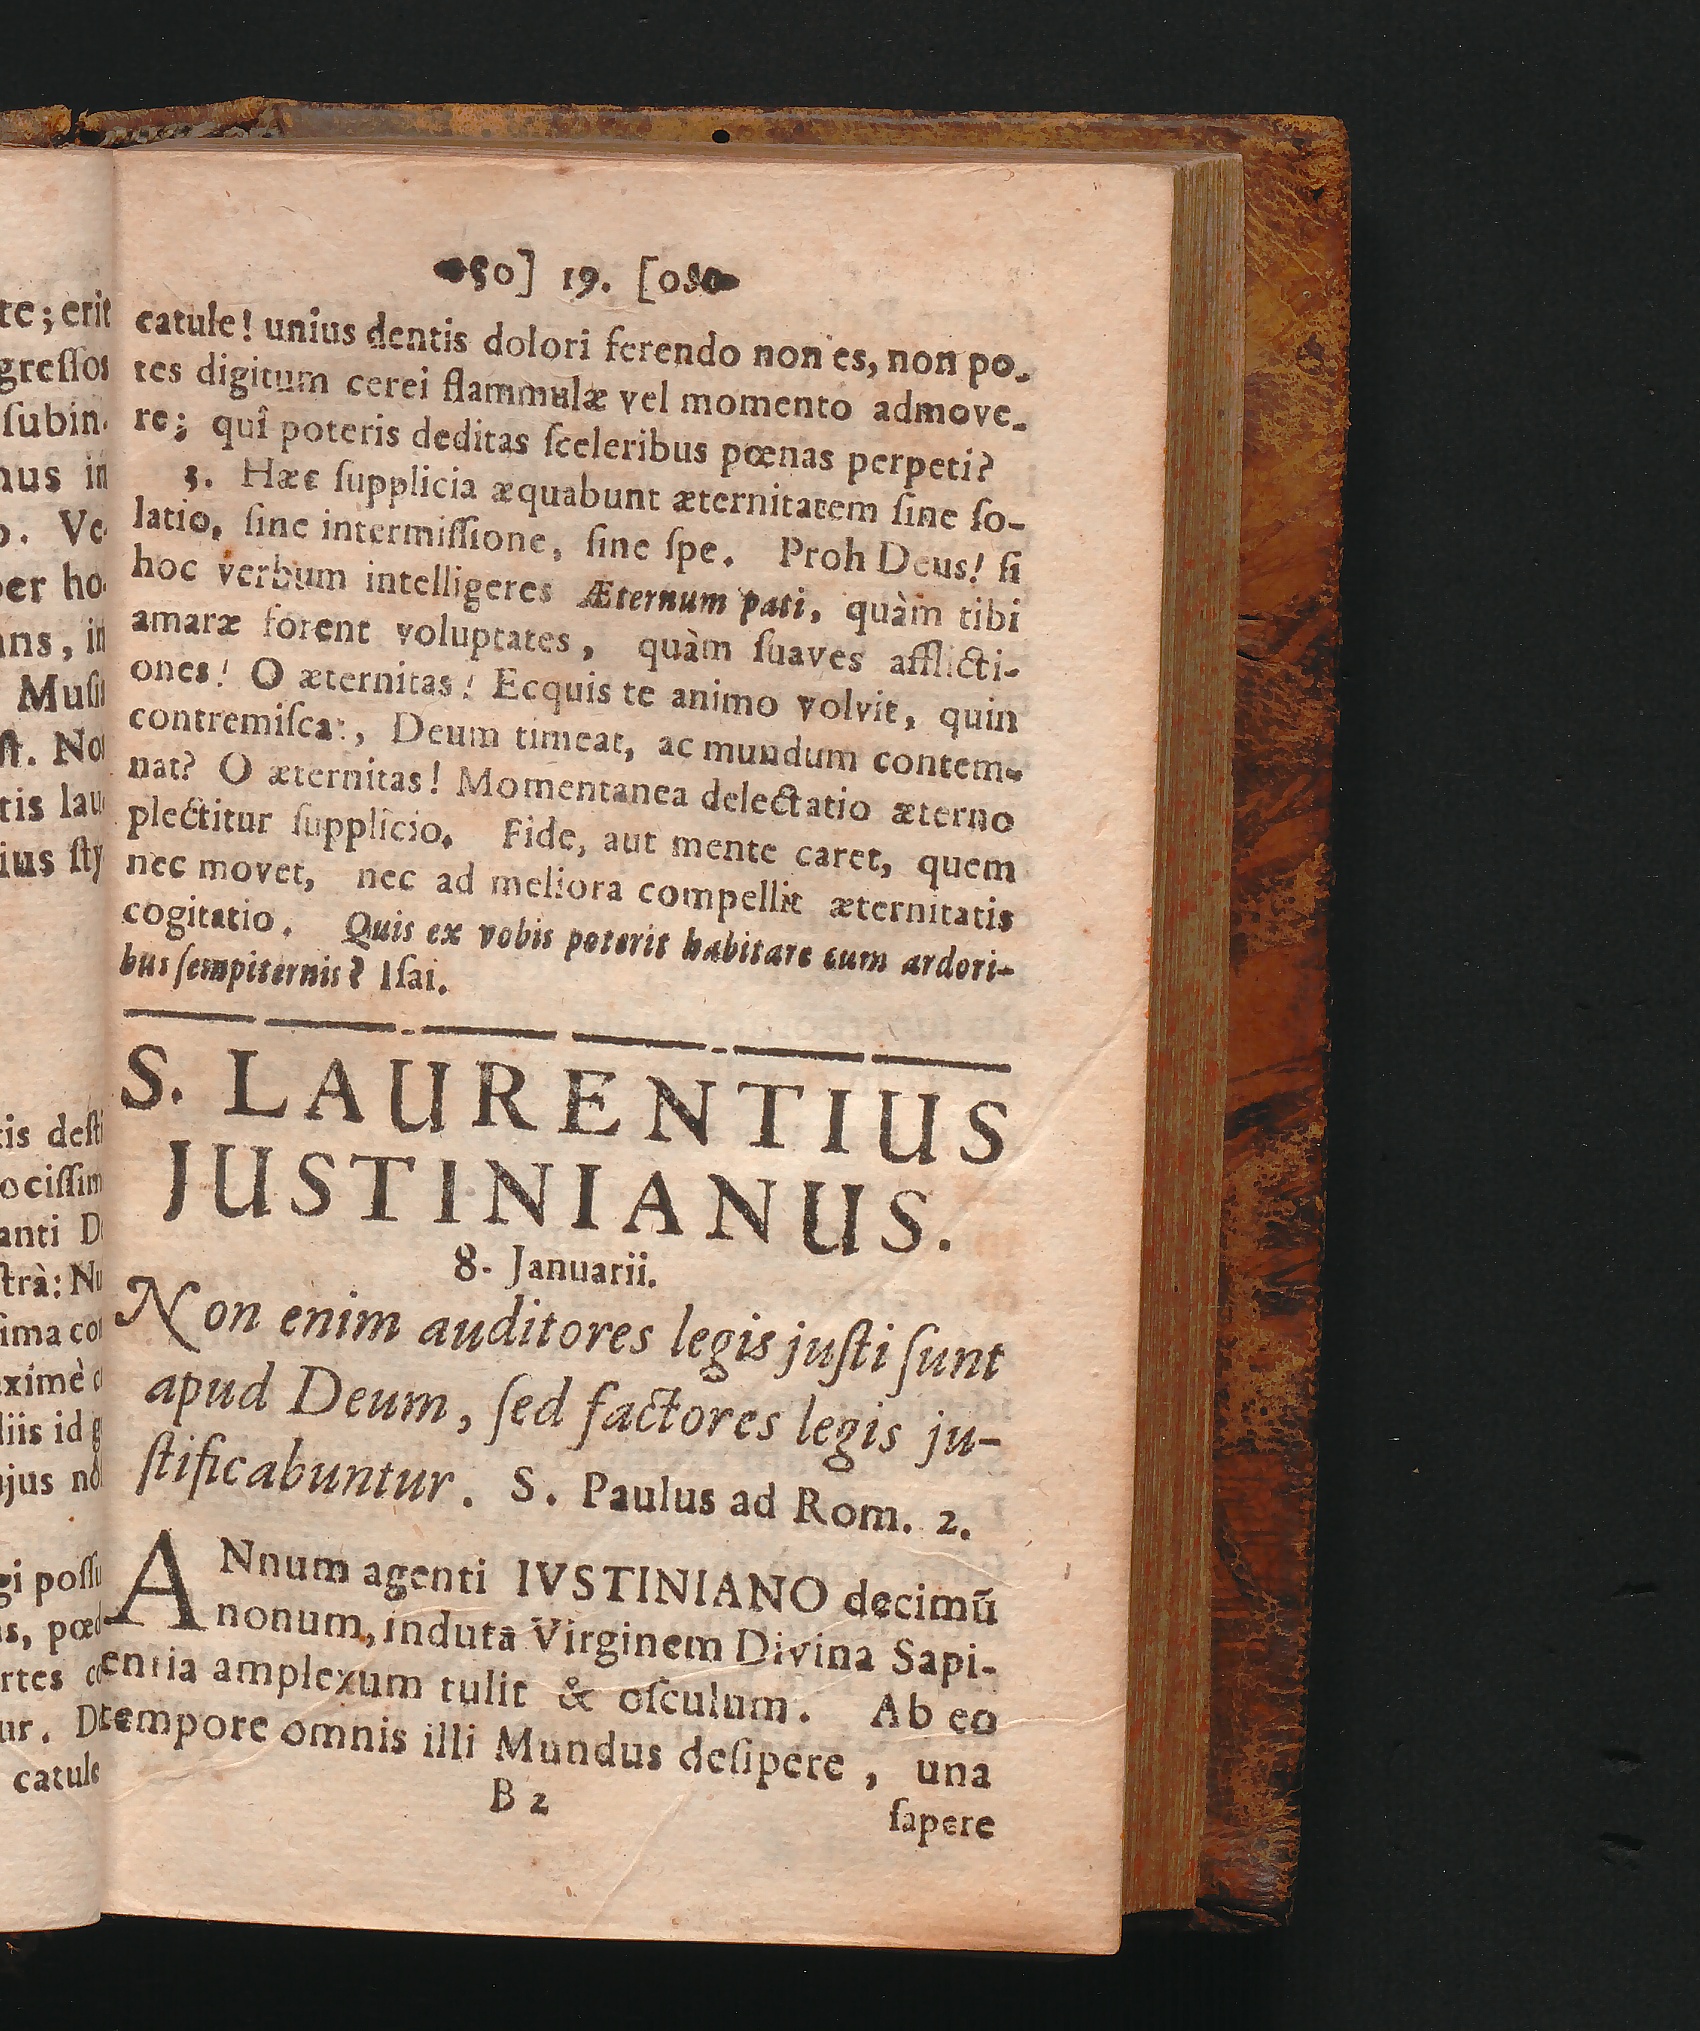 te; erit
greſſos
ſubin-
nus in
o. Ve-
per ho-
ans, in
Muſi
ſt. Non
tis lau
ius ſty
tis deſti
ociſſim
anti D
ſtrà: Nu
ſima co
xime
liis id
jus no
gi poſſu
s, pœ
rtes co
ur. D
catule
[o] 19. [o]
catule! unius dentis dolori ferendo non es, non po-
tes digitum cerei flammulæ vel momento admove-
re; quî poteris deditas ſceleribus pœnas perpeti?
3. Hæc ſupplicia æquabunt æternitatem ſine ſo-
latio, ſine intermiſſione, ſine ſpe. Proh Deus! ſi
hoc verbum intelligeres Æternum pati, quàm tibi
amaræ forent voluptates, quàm ſuaves afflicti-
ones! O æternitas! Ecquis te animo volvit, quin
contremiſcat, Deum timeat, ac mundum contem-
nat? O æternitas! Momentanea delectatio æterno
plectitur ſupplicio. Fide, aut mente caret, quem
nec movet, nec ad meliora compellit æternitatis
cogitatio. Quis ex vobis poterit habitare cum ardori-
bus ſempiternis? Iſai.
S. LAURENTIUS
JUSTINIANUS.
8. Januarii.
Non enim auditores legis juſti ſunt
apud Deum, ſed factores legis ju-
ſtificabuntur. S. Paulus ad Rom. 2.
ANnum agenti IVSTINIANO decimū
nonum, induta Virginem Divina Sapi-
entia amplexum tulit & oſculum. Ab eo
tempore omnis illi Mundus deſipere, una
B 2
ſapere